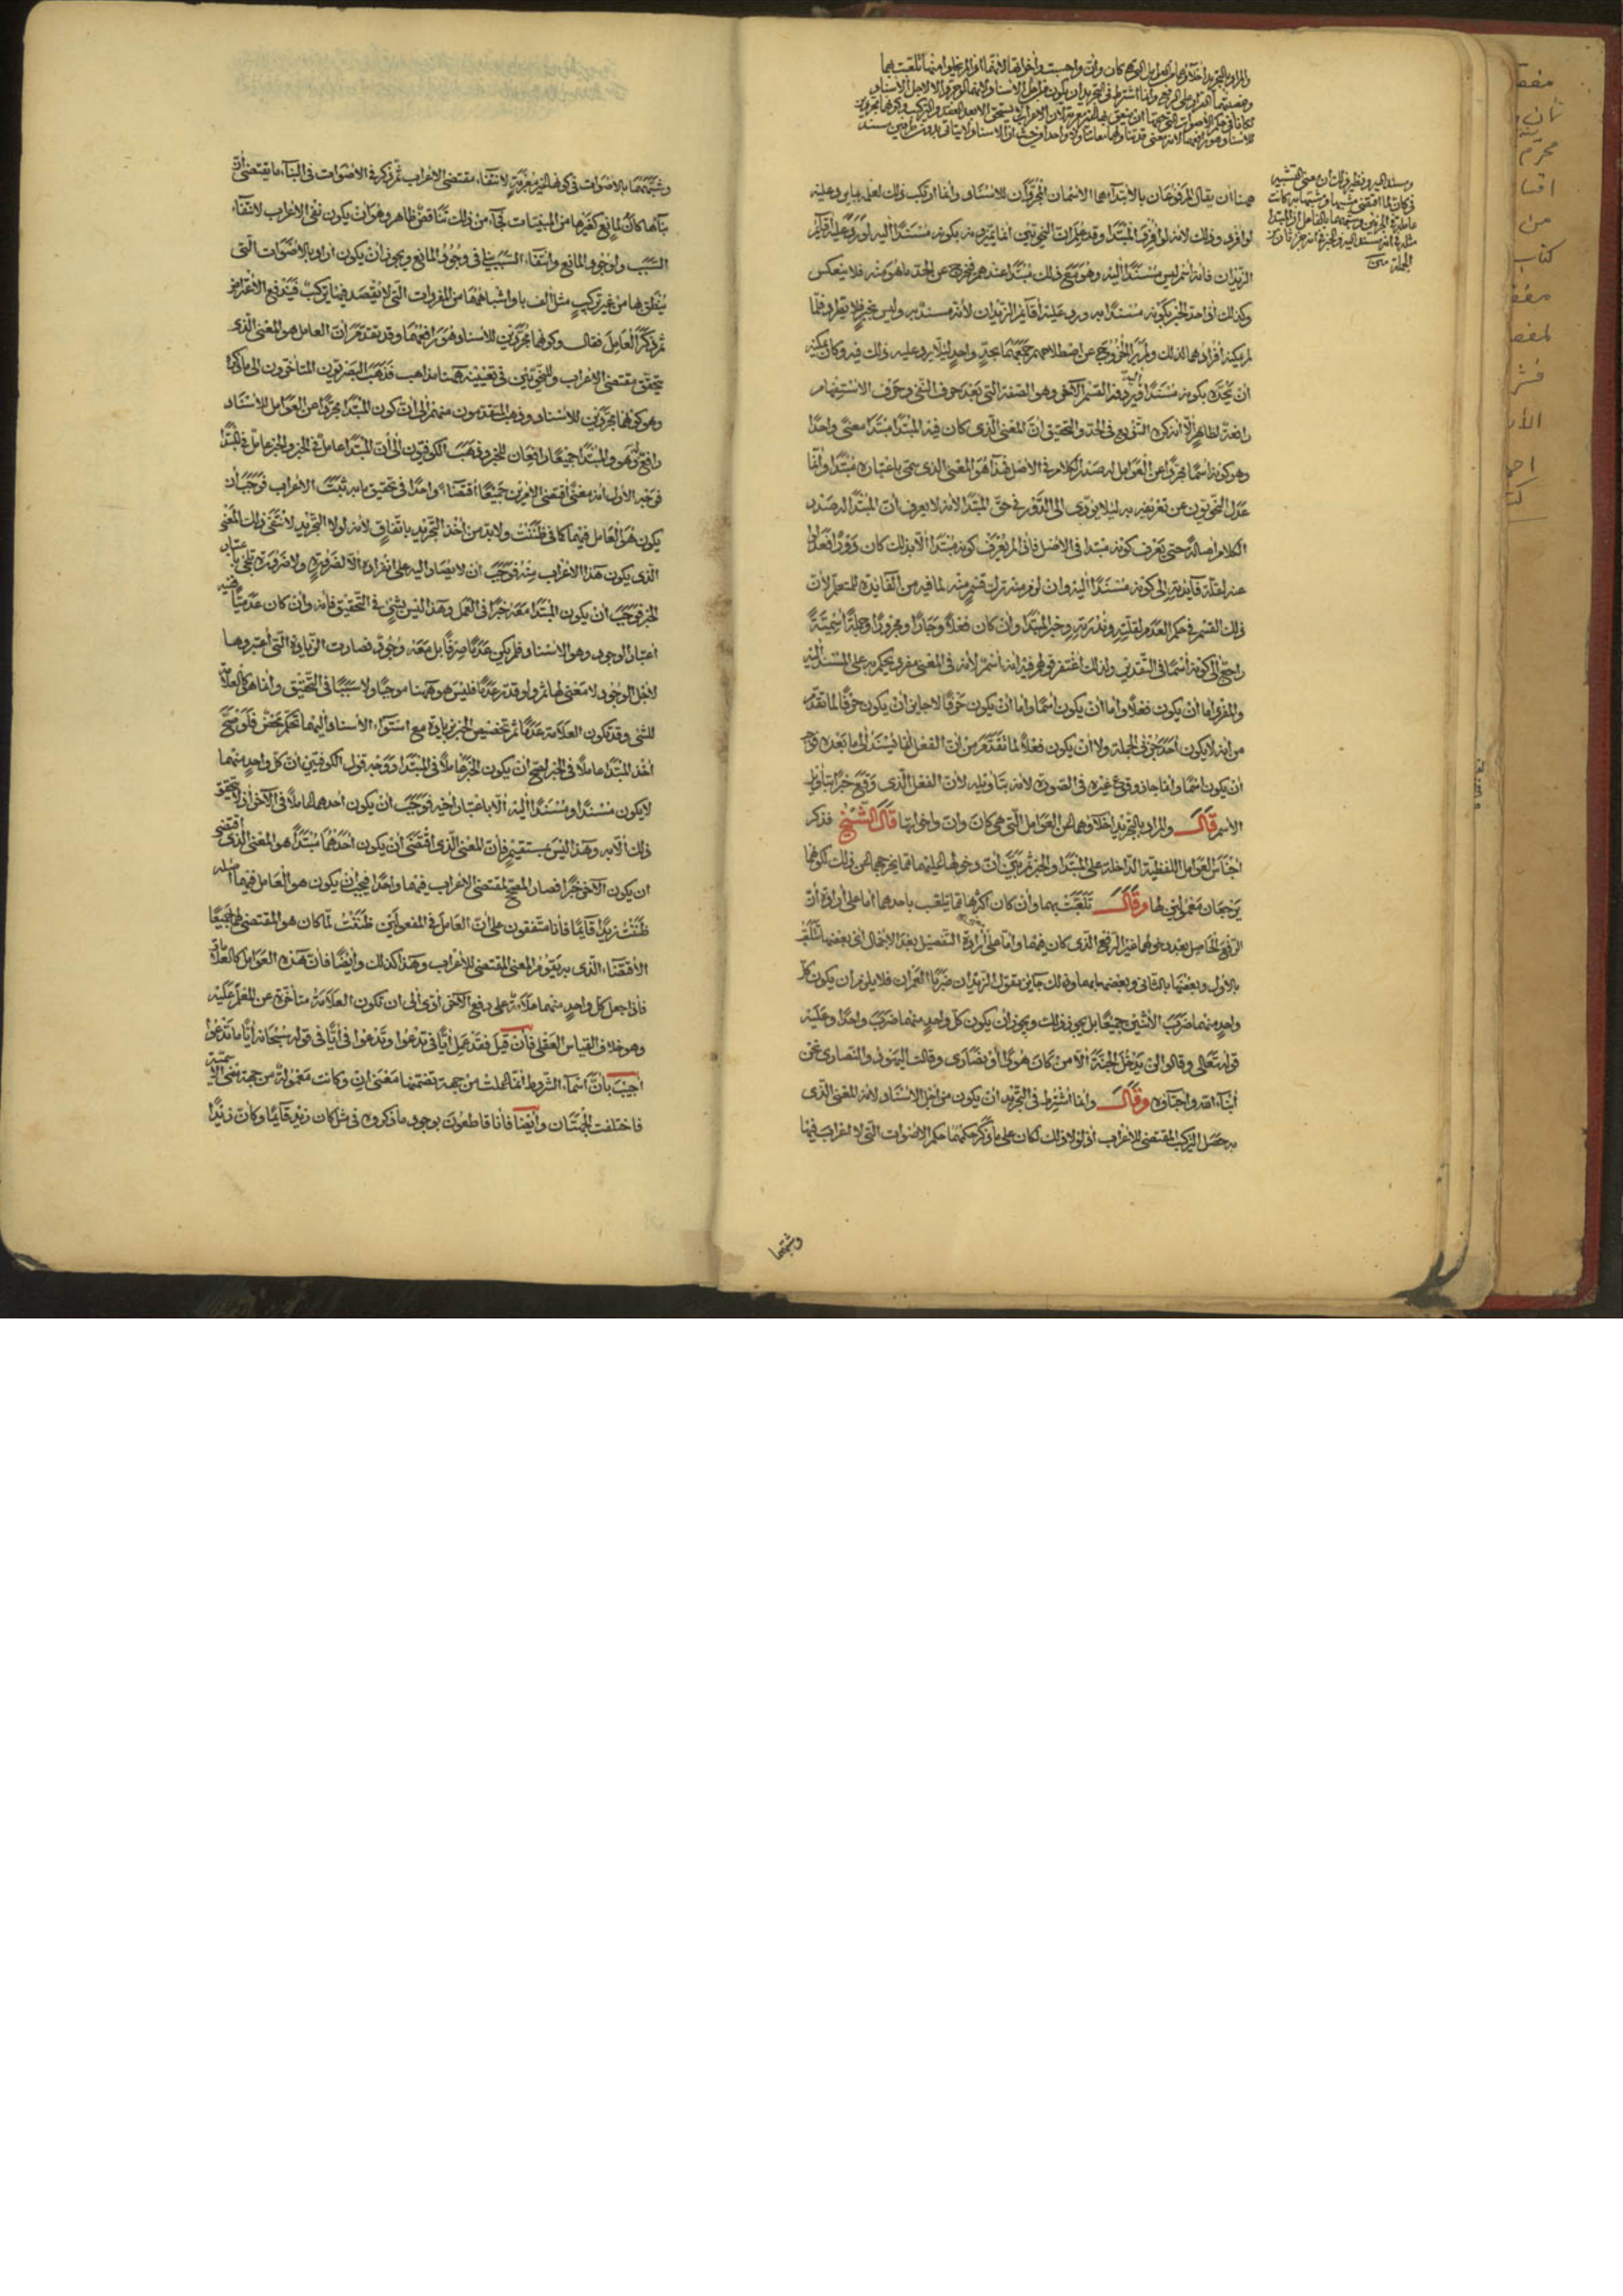 والمراد بالتجريد إخلاؤهما من العوامل التي هي كان وإن وحسبت وأخواتها لأنهما إذا لم يخلوا منها تلعبت بهما
وغصبتهما القرار على الرفع وإنما اشترط في التجريد أن يكون من أجل الإسناد لأنهما لو جردا لا لأجل الإسناد
لكانا في حكم الأصوات التي حقها أن ينعق بها غير معربة لأن الإعراب لا يستحق إلا بعد العقد والتركيب وكونهما مجردين
للإسناد هو رافعهما لأنه معنى قد تناولهما معا تناولا واحدا من حيث أن الإسناد لا يتأتى بدون طرفين مسند
ومسند إليه ونظير ذلك أن معنى التشبيه
في كأن لما اقتضى مشبها ومشبها به كانت
عاملة في الجزئين وشبههما بالفاعل أن المبتدأ
مثله في أنه مسند إليه والخبر في أنه جزء ثان من
الجملة
ههنا أن يقال المرفوعان بالابتداء هما الاسمان المجردان للإسناد وإنما ارتكب ذلك لعلمه بما يرد عليه
لو أفرد وذلك لأنه لو أفرد المبتدأ وقد علم أن النحويين إنما يميزونه بكونه مسندا إليه لورد عليه أقائم
الزيدان فإنه اسم ليس مسندا إليه وهو مع ذلك مبتدأ عندهم فخرج عن الحد ما هو منه فلا ينعكس
وكذلك إذا حد الخبر بكونه مسندا به ورد عليه أقائم الزيدان لأنه مسند به وليس بخبر فلا يطرد فلما
لم يمكنه إفرادهما لذلك ولم ير الخروج عن اصطلاحهم جمعهما بحد واحد لئلا يرد عليه ذلك فيه وكان يمكنه
أن يحده بكونه مسندا إليه ويزيد فيه القسم الآخر وهو الصفة التي بعد حرف النفي وحرف الاستفهام
رافعة لظاهر إلا أنه كره التنويع في الحد والتحقيق أن المعنى الذي كان فيه المبتدأ مبتدأ معنى واحدا
وهو كونه اسما مجردا عن العوامل له صدر الكلام في الأصل فهذا هو المعنى الذي سمي باعتباره مبتدأ وإنما
عدل النحويون عن تعريفه به لئلا يؤدي إلى الدور في حق المبتدأ لأنه لا يعرف أن المبتدأ له صدر
الكلام أصالة حتى يعرف كونه مبتدأ في الأصل فإذا لم يعرف كونه مبتدأ إلا بذلك كان دورا فعدل
عنه لقلة فائدته إلى كونه مسندا إليه وإن لزم منه ترك قسم منه لما فيه من الفائدة للمتعلم لأن
ذلك القسم في حكم العدم لقلته وندرته وخبر المبتدأ وإن كان فعلا وجارا ومجرورا وجملة اسمية
راجع إلى كونه اسما في التقدير ولذلك اغتفر قولهم فيه إنه اسم لأنه في المعنى مفرد يحكم به على المسند إليه
والمفرد إما أن يكون فعلا وإما أن يكون اسما وإما أن يكون حرفا لا جائز أن يكون حرفا لما تقدم
من أنه لا يكون أحد جزئي الجملة ولا أن يكون فعلا لما تقدم من أن الفعل إنما يسند إلى ما بعده فوجب
أن يكون اسما وإنما جاز وقوع غيره في الصورة لأنه بتأويله لأن الفعل الذي وقع خبرا بتأويل
الاسم قال والمراد بالتجريد إخلاؤهما من العوامل التي هي كان وإن وأخواتها قال الشيخ فذكر
أجناس العوامل اللفظية الداخلة على المبتدأ والخبر ثم بين أن دخولها عليهما مما يخرجهما عن ذلك لكونهما
يرجعان معمولين لها وقال تلعبت بهما وإن كان أكثرها مما يتلعب بأحدهما إما على إرادة أن
الرفع الحاصل بعد دخولها غير الرفع الذي كان فيهما وإما على إرادة التفصيل بعد الإجمال أي بعضها تتلعب
بالأول وبعضها بالثاني وبعضها بهما وذلك جائز تقول الزيدان ضربا العمران فلا يلزم أن يكون كل
واحد منهما ضرب الاثنين جميعا بل يجوز ذلك ويجوز أن يكون كل واحد منهما ضرب واحدا وعليه
قوله تعالى وقالوا لن يدخل الجنة إلا من كان هودا أو نصارى وقالت اليهود والنصارى نحن
أبناء الله وأحباؤه وقال وإنما اشترط في التجريد أن يكون من أجل الإسناد لأنه المعنى الذي
به حصل التركب المقتضي للإعراب إذ لولا ذلك لكان على ما ذكر حكمهما حكم الأصوات التي لا إعراب فيها
وشبهها
وشبههما بالأصوات في كونها غير معربة لانتفاء مقتضي الإعراب ثم ذكر في الأصوات في البناء ما يقتضي أن
بناءها كان لمانع كغيرها من المبنيات فجاء من ذلك تناقض ظاهر وهو أن يكون نفي الإعراب لانتفاء
السبب ولوجود المانع وانتفاء السبب ينافي وجود المانع ويجوز أن يكون أراد بالأصوات التي
ينطق بها من غير تركيب مثل ألف با وأشباههما من المفردات التي لا يقصد فيها تركيب فيندفع الاعتراض
ثم ذكر العامل فقال وكونهما مجردين للإسناد هو رافعهما وقد تقدم أن العامل هو المعنى الذي
يتحقق مقتضي الإعراب وللنحويين في تعيينه ههنا مذاهب فذهب البصريون المتأخرون إلى ما ذكرنا
وهو كونهما مجردين للإسناد وذهب المتقدمون منهم إلى أن كون المبتدأ مجردا عن العوامل للإسناد
رافع له وهو والمبتدأ جميعا رافعان للخبر وذهب الكوفيون إلى أن المبتدأ عامل في الخبر والخبر عامل في المبتدأ
فوجه الأول أنه معنى اقتضى الأمرين جميعا اقتضاء واحدا في تحقيق ما به ثبت الإعراب فوجب أن
يكون هو العامل فيهما كما في ظننت ولا بد من أخذ التجريد باتفاق لأنه لولا التجريد لانتفى ذلك المعنى
الذي يكون هذا الإعراب منه فوجب أن لا يصار إليه على انفراده إلا لضرورة ولا ضرورة تلجئ اعتباره
الخبر فوجب أن يكون المبتدأ معه جزءا في العمل وهذا ليس بشيء في التحقيق فإنه وإن كان عدميا ففيه
اعتبار الوجود وهو الإسناد فلم يكن عدما صرفا بل معه وجود فصارت الزيادة التي اعتبروها
لأجل الوجود لا معنى لها ثم ولو قدر عدما فليس هو ههنا موجبا ولا سببا في التحقيق وإنما هو كالعلامة
للشيء وقد تكون العلامة عدما ثم تخصيص الخبر بزيادة مع استواء الإسناد إليهما تحكم محض فلو صح
أخذ المبتدأ عاملا في الخبر لصح أن يكون الخبر عاملا في المبتدأ ووجه قول الكوفيين أن كل واحد منهما
لا يكون مسندا ومسندا إليه إلا باعتبار أخيه فوجب أن يكون أحدهما عاملا في الآخر إذ لا تحقيق
ذلك إلا به وهذا ليس بمستقيم فإن المعنى الذي اقتضى أن يكون أحدهما مبتدأ هو المعنى الذي اقتضى
أن يكون الآخر خبرا فصار المصحح لمقتضي الإعراب فيهما واحدا فيجب أن يكون هو العامل فيهما أصله
ظننت زيدا قائما فإنا متفقون على أن العامل في المفعولين ظننت لما كان هو المقتضي لهما جميعا
الاقتضاء الذي به يتقوم المعنى المقتضي للإعراب وهذا كذلك وأيضا فإن هذه العوامل كالعلامات
فإذا جعل كل واحد منهما علامة على رفع الآخر أدى إلى أن تكون العلامة متأخرة عن المعلم عليه
وهو خلاف القياس العقلي فإن قيل فقد عمل أيا في تدعوا وتدعوا في أيا في قوله سبحانه أيا ما تدعوا
أجيب بأن أسماء الشروط إنما عملت من جهة تضمنها معنى إن وكانت معمولة من جهة معنى الاسمية
فاختلفت الجهتان وأيضا فإنا قاطعون بوجود ما ذكروه في مثل كان زيد قائما وكأن زيدا